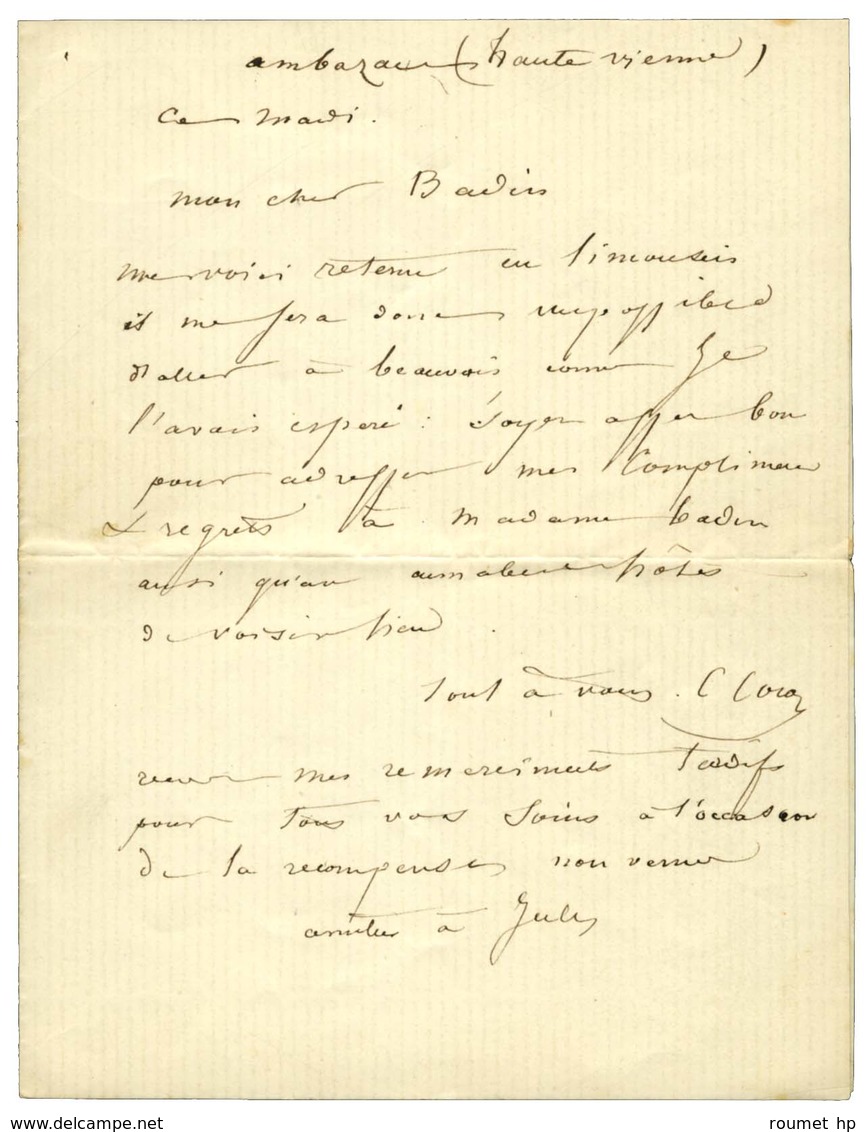 ambazac (haute vienne)
ce mardi.
mon cher Badin
me voici retenu en limousin
il me sera donc impossible
d'aller à beauvais comme je
l'avais espéré : Soyez assez bon
pour adresser mes compliments
& regrets à madame badin
ainsi qu'aux aimables hôtes
de voisinlieu.
tout à vous. C
recevez mes remerciments tardifs
pour tous vos soins à l'occasion
de la recompense non venue
amitiés à Jules
roumet hp